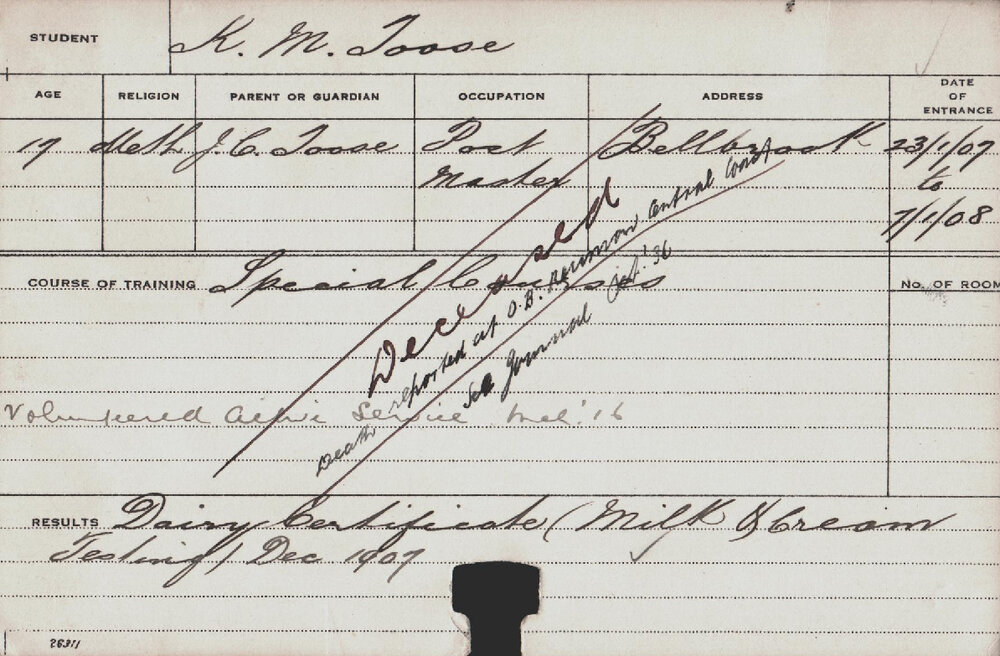 STUDENT K. M. Toose
AGE RELIGION PARENT OR GUARDIAN OCCUPATION ADDRESS DATE OF ENTRANCE
17 Meth J. C. Toose Post Master Bellbrook 23/1/07 to 7/1/08
COURSE OF TRAINING Special Courses
No. OF ROOM
Deceased
Death reported at O.B. Reunion Central Coast
See Journal July '36
Volunteered Active Service Mch. '16
RESULTS Dairy Certificate (Milk & Cream
Testing) Dec 1907
26311